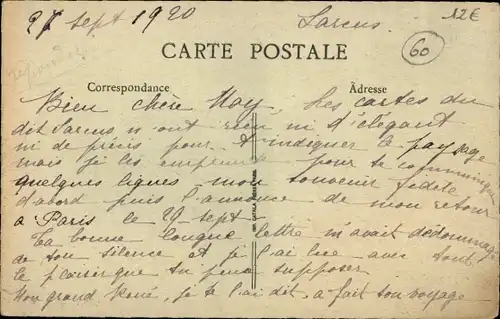 27 Sept 1920 Sarcus 12€
60
CARTE POSTALE
Correspondance Adresse
Bien chère May, Les cartes du
dit Sarcus n'ont rien ni d'élégant
ni de précis pour t'indiquer le paysage
mais je les emprunte pour te communiquer
quelques lignes mon souvenir fidèle
d'abord puis l'annonce de mon retour
à Paris le 29 sept
Ta bonne longue lettre m'avait dédommagé
de ton silence et je l'ai lue avec tout
le plaisir que tu peux supposer
Mon grand René, je te l'ai dit, a fait son voyage